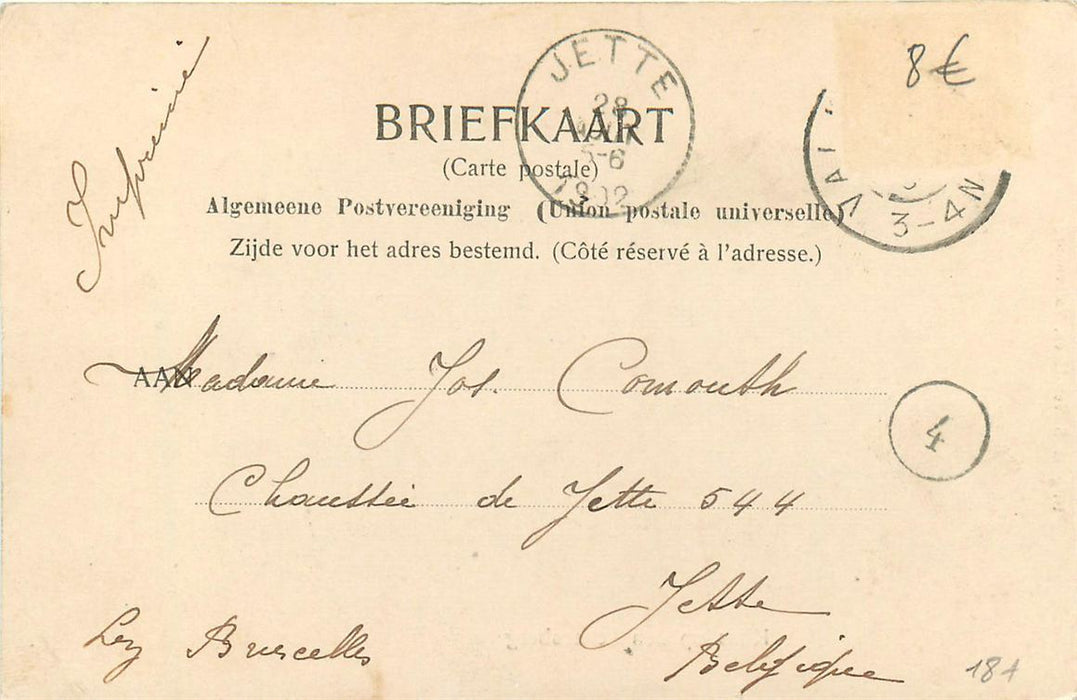 Imprimé
8 €
JETTE
28
5-6
1902
VAL
3-4N
BRIEFKAART
(Carte postale)
Algemeene Postvereeniging (Union postale universelle)
Zijde voor het adres bestemd. (Côté réservé à l'adresse.)
AAN Madame Jos. Comouth
4
Chaussée de Jette 544
Jette
Lez Bruxelles
Belgique